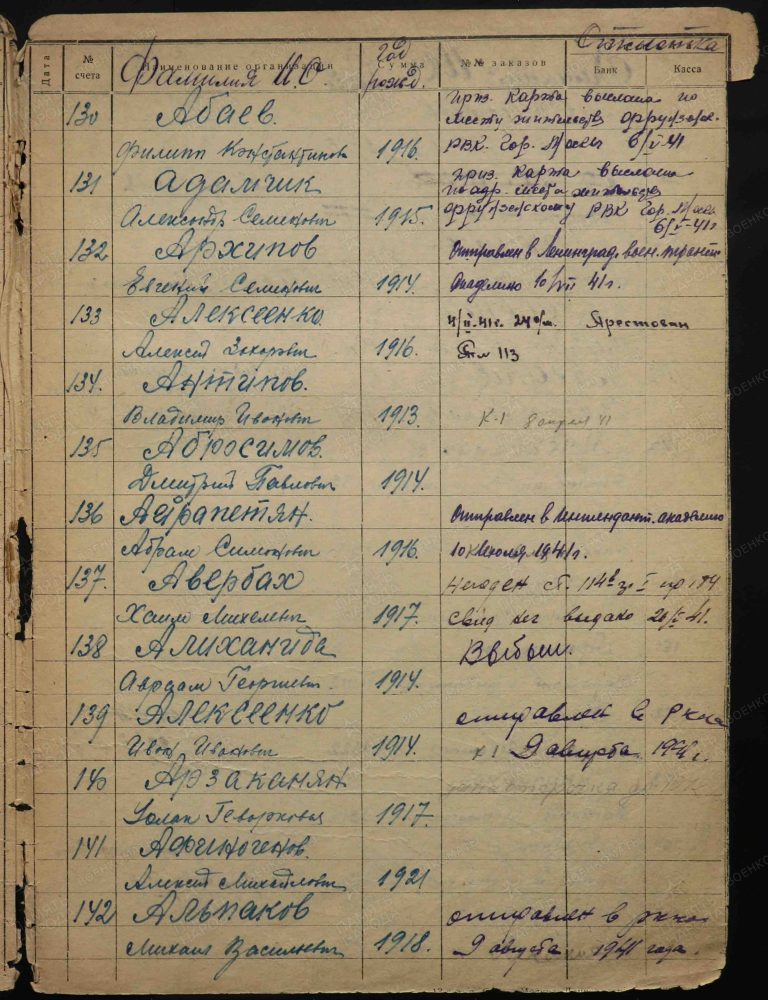 Дата № счета Наименование организации Сумма №№ заказов Банк Касса
Фамилия И.О. Год рожд. Отметка
130 Абаев. приз. карта выслана по
месту жительства Фрунзенс.
Филипп Константинов 1916. РВК. Гор. Москвы 6/V-41
131 Адамчик приз. карта выслана
по адр. места жительства
Александр Семенович 1915. Фрунзенскому РВК Гор. Москвы
6/V-41г
132 Архипов Отправлен в Ленинград. воен.
Евгений Семенович 1914. Академию 10/VII 41г.
133 Алексеенко 4/II-41г. Арестован
Алексей Захарович 1916. 113
134. Антипов.
Владимир Иванович 1913. К-1 8 апреля 41
135 Абросимов.
Дмитрий Павлович 1914.
136 Айрапетян. Отправлен в Интендант. академию
Абрам Симонович 1916. 10 Июля 1941г.
137. Авербах Негоден ст. 114
Хаим Михелевич 1917. Свид выдано 20/V-41.
138 Алиханида Выбыл.
Аврам Георгиевич. 1914.
139 Алексеенко отправлен в РККА
Иван Иванович 1914. 9 августа 1941г.
140 Арзаканян
Геворкович 1917.
141 Афиногенов.
Алексей Михайлович 1921
142 Альпаков отправлен в ркка
Михаил Васильевич 1918. 9 августа 1941 года.